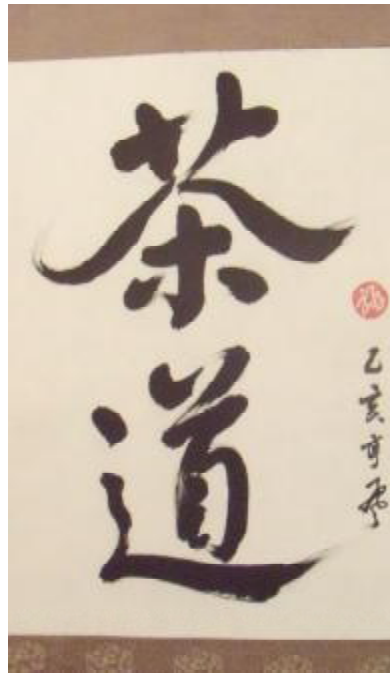 茶道
乙亥